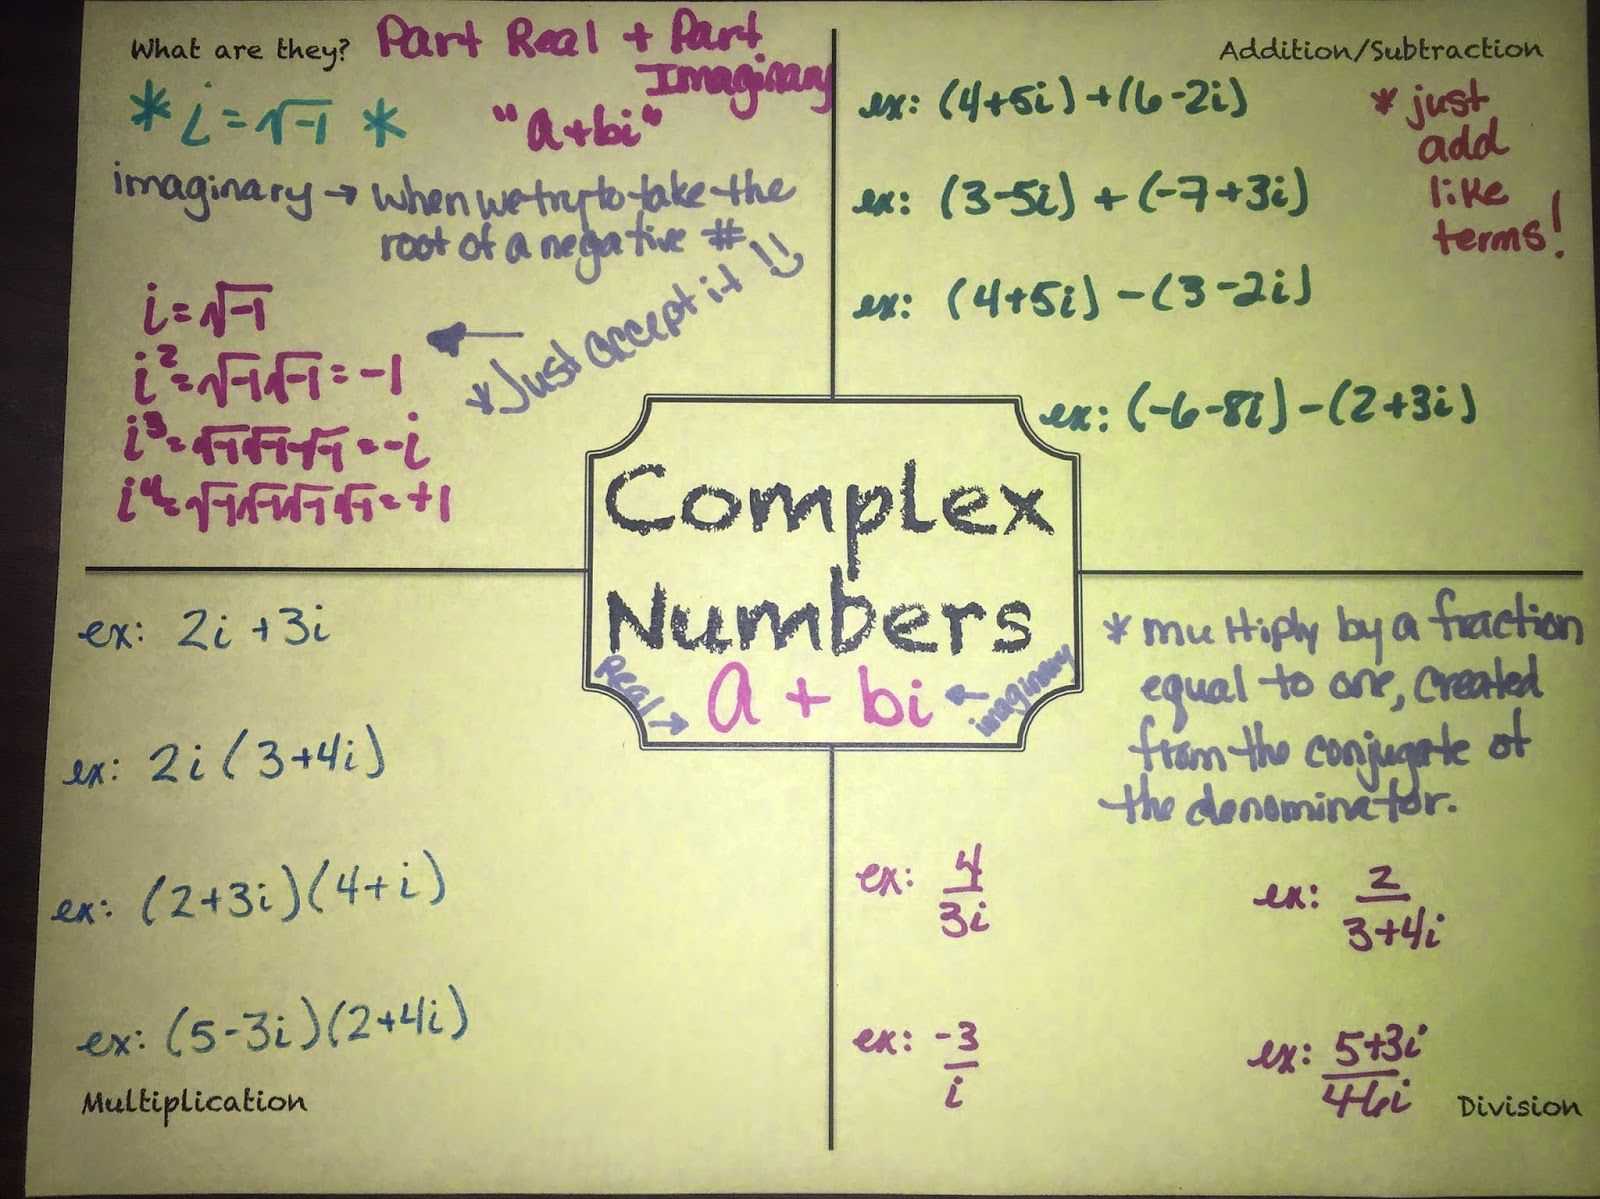 What are they? Part Real + Part
Imaginary
* i = √-1 *
"a+bi"
imaginary → when we try to take the
root of a negative #
* Just accept it
i = √-1
i² = √-1 √-1 = -1
i³ = √-1 √-1 √-1 = -i
i⁴ = √-1 √-1 √-1 √-1 = +1
Addition/Subtraction
ex: (4+5i) + (6-2i)
* just
add
like
terms!
ex: (3-5i) + (-7+3i)
ex: (4+5i) - (3-2i)
ex: (-6-8i) - (2+3i)
Complex
Numbers
Real → a + bi ← imaginary
ex: 2i + 3i
ex: 2i (3+4i)
ex: (2+3i)(4+i)
ex: (5-3i)(2+4i)
Multiplication
* multiply by a fraction
equal to one, created
from the conjugate of
the denominator.
ex: 4/3i
ex: 2/3+4i
ex: -3/i
ex: 5+3i/4-6i
Division